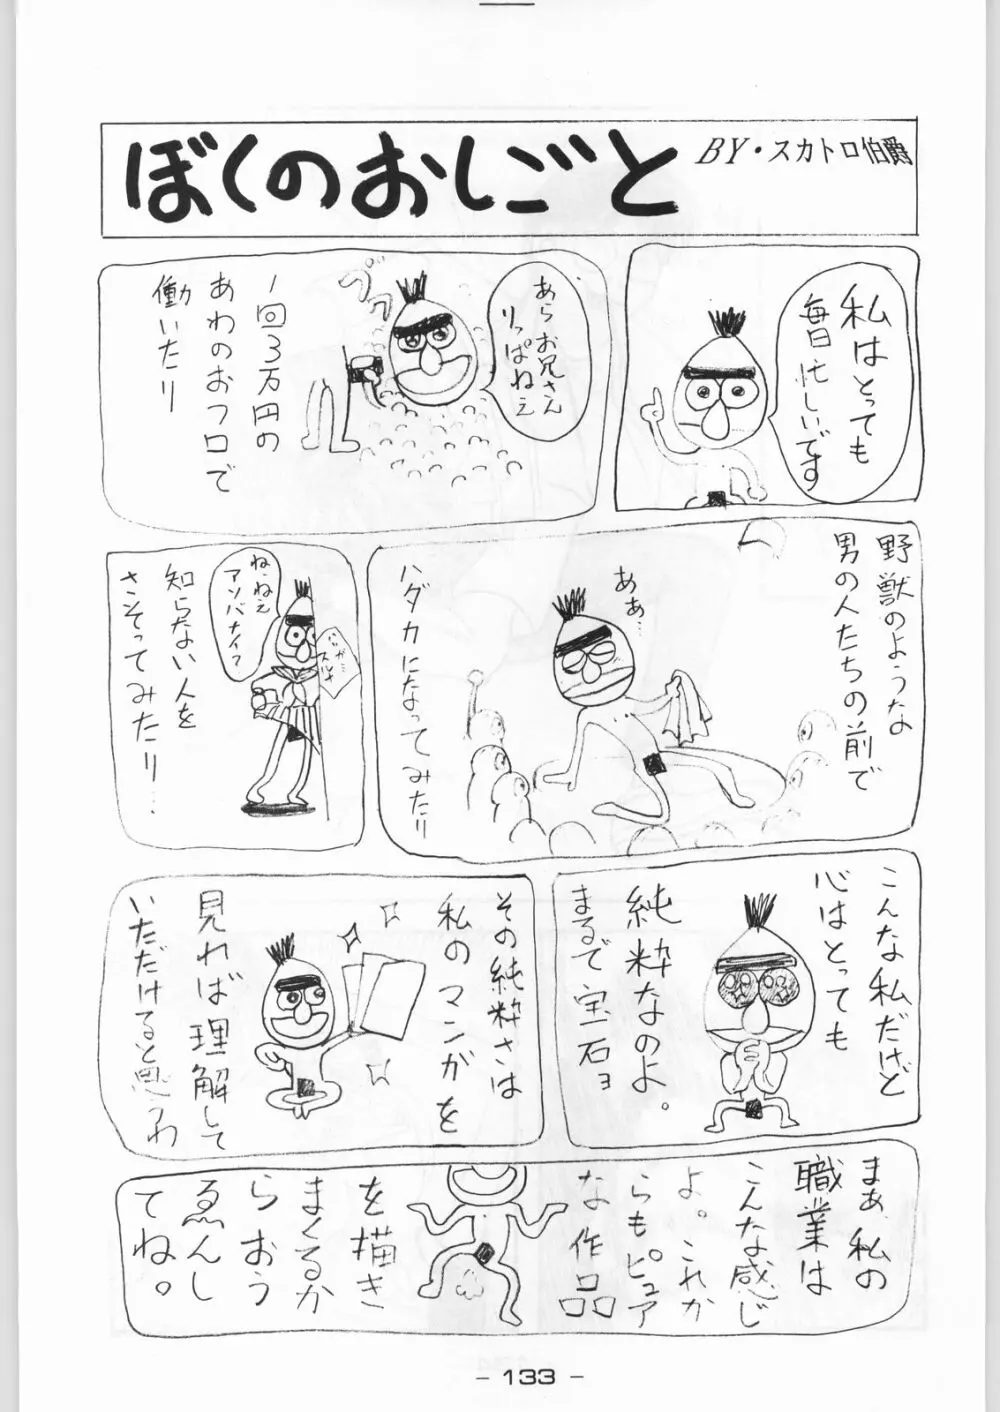 ぼくのおしごと
BY・スカトロ伯爵
私はとっても
毎日忙しいです
あらお兄さん
りっぱねぇ
ブクブク
1回3万円の
あわのおフロで
働いたり
野獣のような
男の人たちの前で
ああ…
ハダカになってみたり
ねぇねぇ
アソバナイ?
知らない人を
さそってみたり…
こんな私だけど
心はとっても
純粋なのよ。
まるで宝石ョ
その純粋さは
私のマンガを
見れば理解して
いただけると思うわ
まあ私の
職業は
こんな感じ
よ。これか
らもピュア
な作品
を描き
まくるか
らおう
ゑんし
てね。
- 133 -